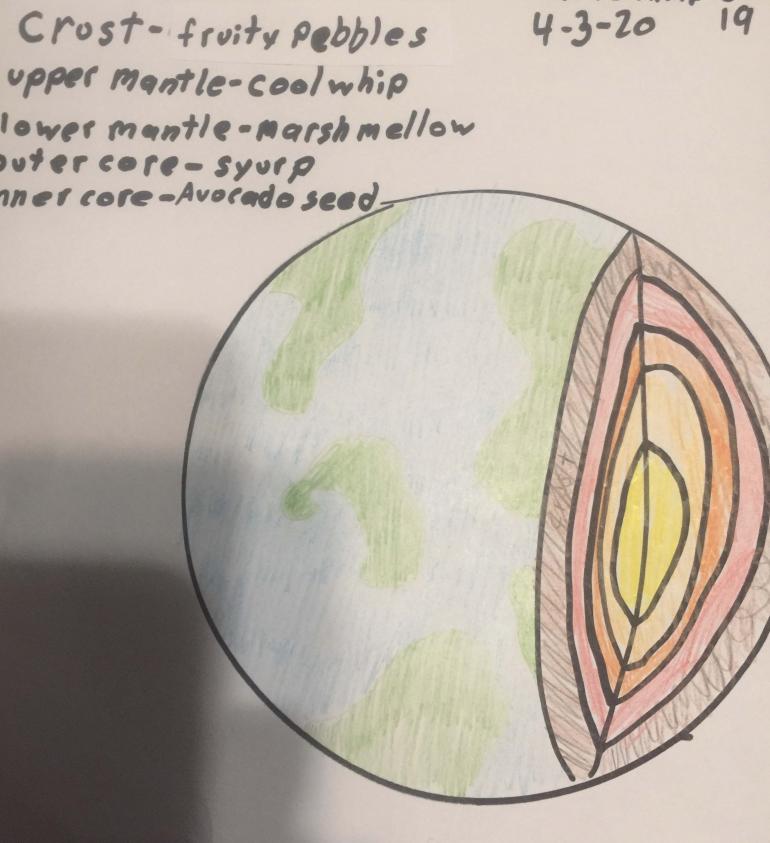 Crost- fruity Pebbles
4-3-20 19
upper mantle-coolwhip
lower mantle-marshmellow
outer core- syurp
nner core-Avocado seed